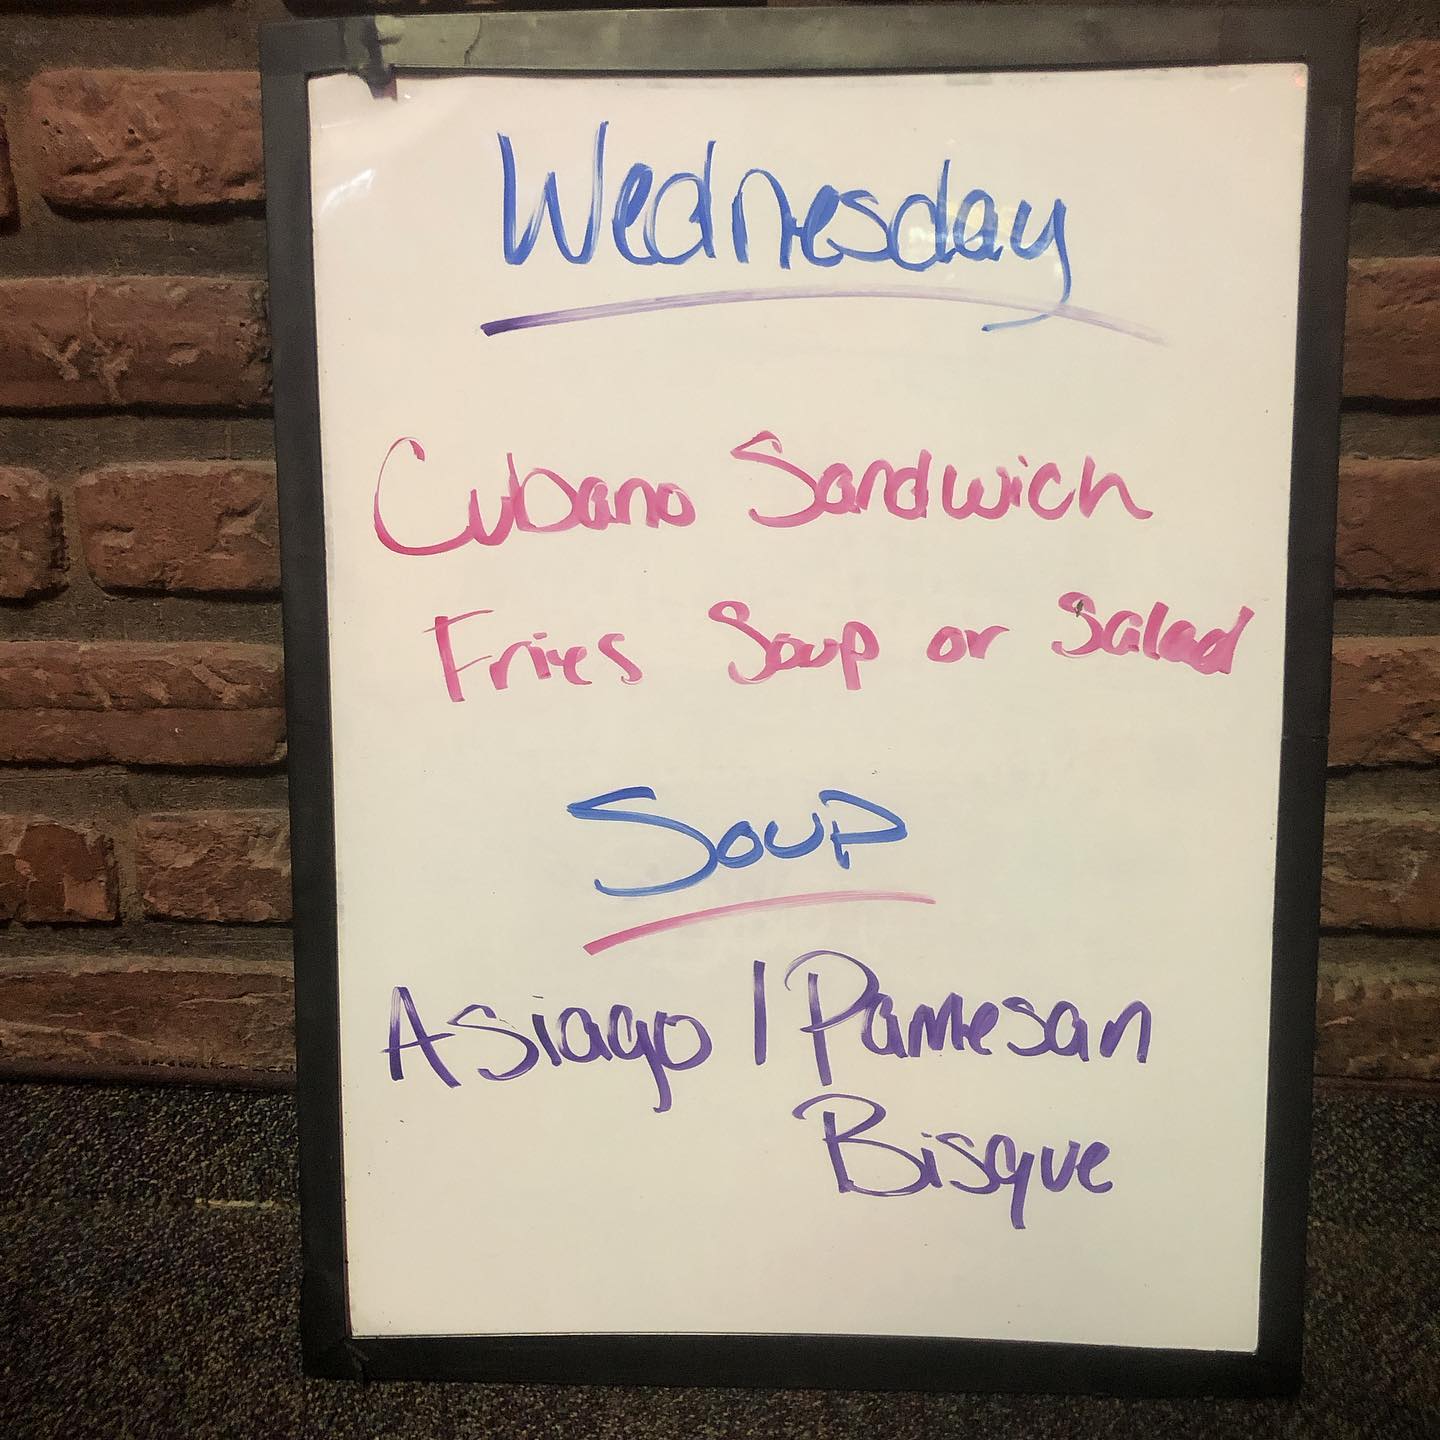 Wednesday
Cubano Sandwich
Fries Soup or Salad
Soup
Asiago / Parmesan
Bisque